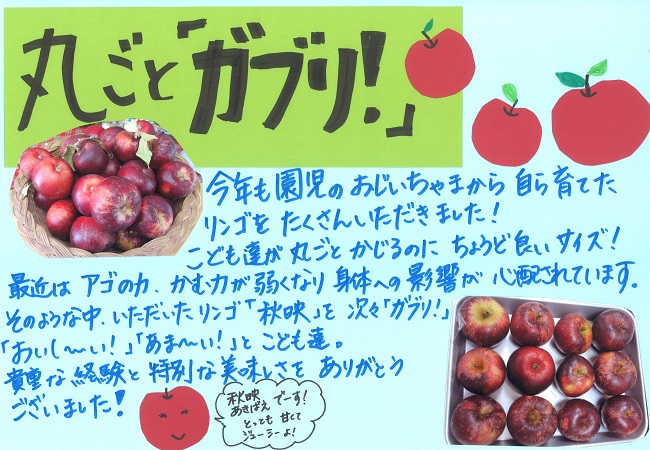 丸ごと「ガブリ!」
今年も園児のおじいちゃまから自ら育てた
リンゴをたくさんいただきました!
こども達が丸ごとかじるのにちょうど良いサイズ!
最近はアゴの力、かむ力が弱くなり身体への影響が心配されています。
そのような中、いただいたリンゴ「秋映」を次々「ガブリ!」
「おいし〜い!」「あま〜い!」とこども達。
貴重な経験と特別な美味しさをありがとう
ございました!
秋映でーす!
あきばえ
とっても甘くて
ジューシーよ!